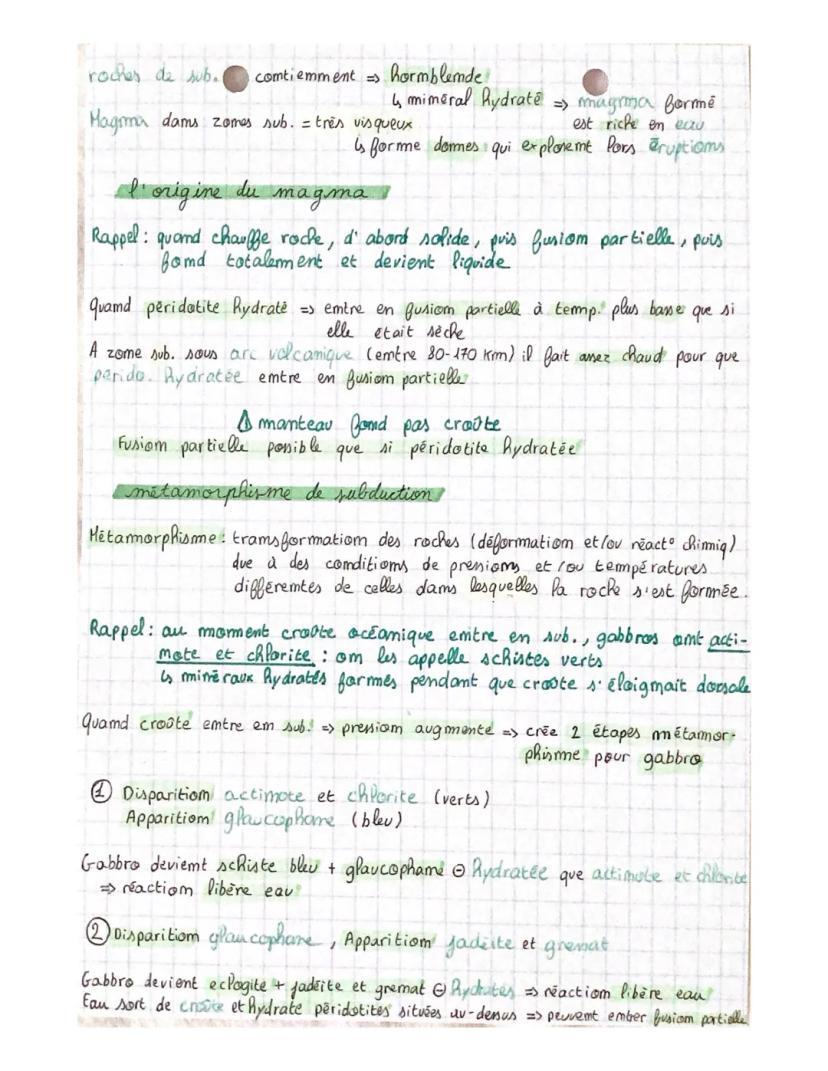 roches de sub. contiennent => hornblende
↳ minéral hydraté => magma formé
Magma dans zones sub. = très visqueux est riche en eau
↳ forme domes qui explosent lors éruptions
l'origine du magma
Rappel : quand chauffe roche, d'abord solide, puis fusion partielle, puis
fond totalement et devient liquide
Quand péridotite hydraté => entre en fusion partielle à temp. plus basse que si
elle était sèche
A zone sub. sous arc volcanique (entre 80-170 km) il fait assez chaud pour que
périido. hydratée entre en fusion partielle
⚠ manteau fond pas croûte
Fusion partielle possible que si péridotite hydratée
métamorphisme de subduction
Métamorphisme : transformation des roches (déformation et/ou réact° chimiq)
due à des conditions de pressions et/ou températures
différentes de celles dans lesquelles la roche s'est formée.
Rappel : au moment croûte océanique entre en sub., gabbros ont acti-
note et chlorite : on les appelle schistes verts
↳ minéraux hydratés formés pendant que croûte s'éloignait dorsale
Quand croûte entre en sub. => pression augmente => crée 2 étapes métamor-
phisme pour gabbro
① Disparition actinote et chlorite (verts)
Apparition glaucophane (bleu)
Gabbro devient schiste bleu + glaucophane ⊖ hydratée que actinote et chlorite
=> réaction libère eau
② Disparition glaucophane, Apparition jadéite et grenat
Gabbro devient eclogite + jadéite et grenat ⊖ hydratés => réaction libère eau
Eau sort de croûte et hydrate péridotites situées au-dessus => peuvent entrer fusion partielle